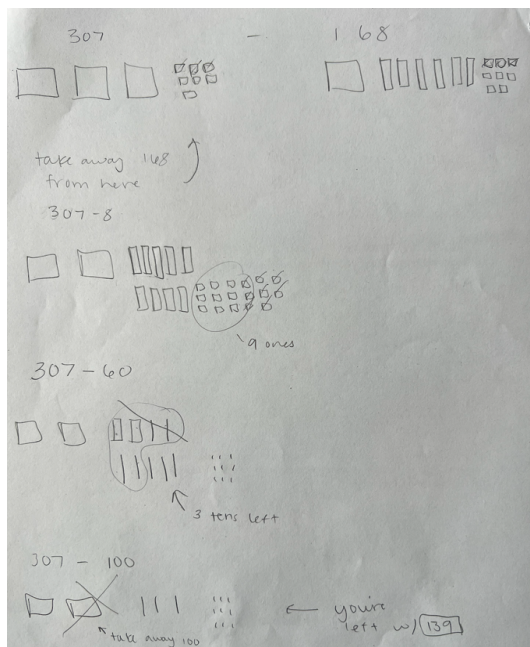 307 - 1 68
take away 168
from here
307-8
9 ones
307-60
3 tens left
307 - 100
take away 100
you're
left w/ 139